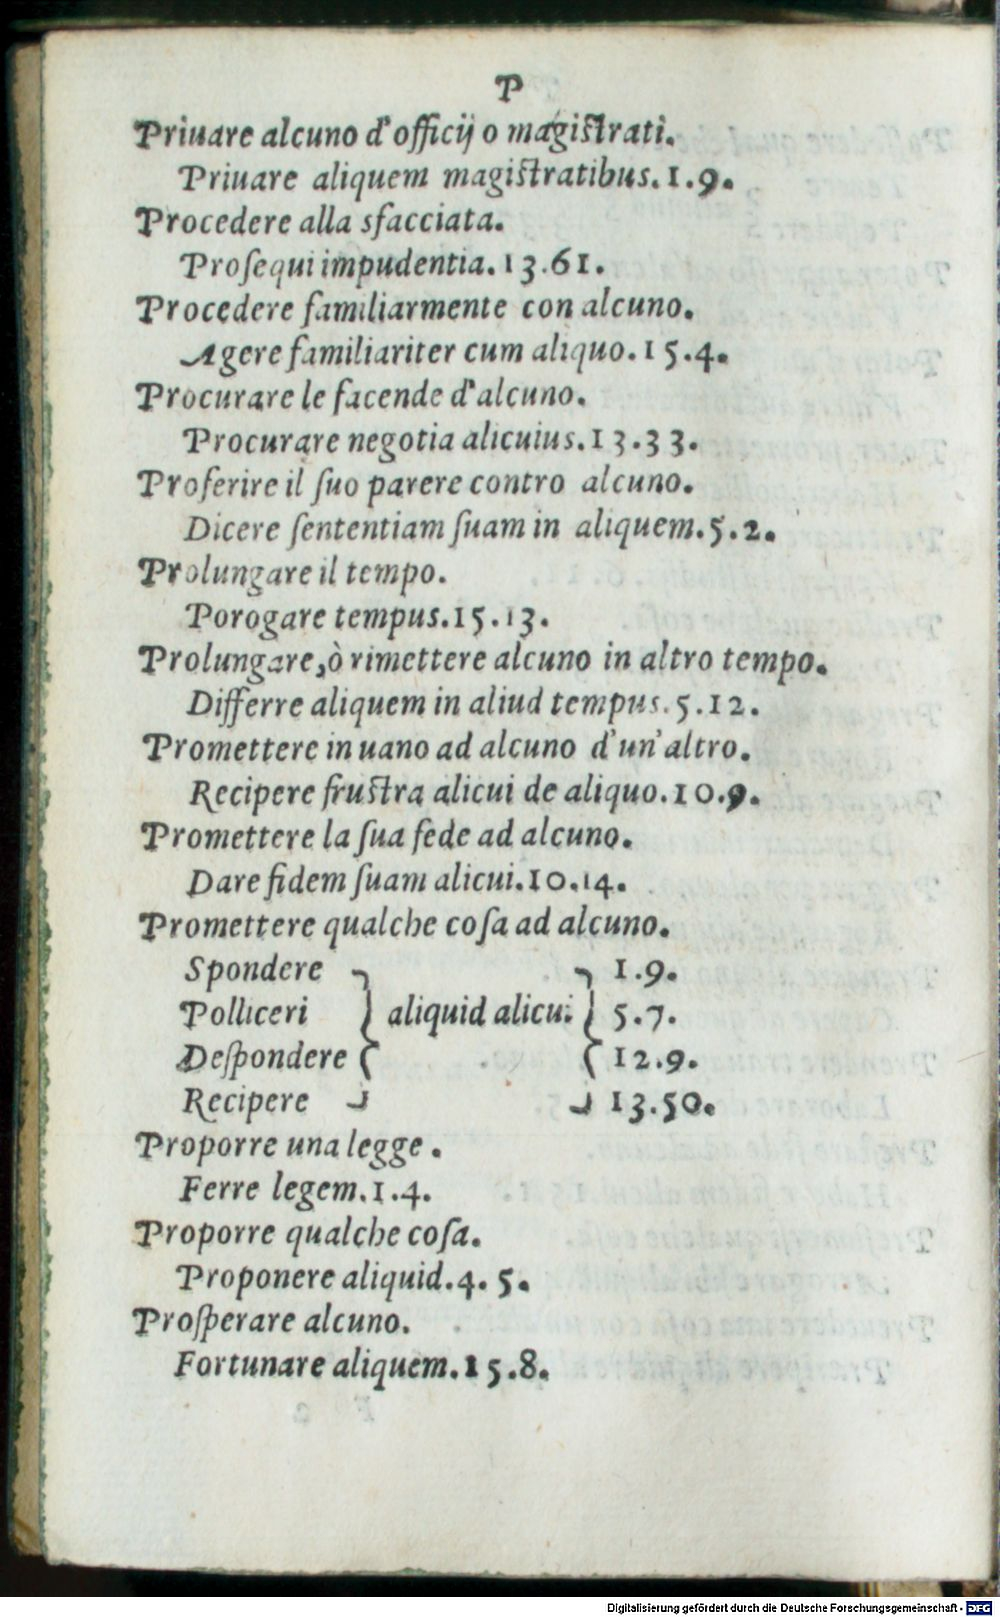 P
Priuare alcuno d'officij o magistrati.
Priuare aliquem magistratibus.1.9.
Procedere alla sfacciata.
Proſequi impudentia.13.61.
Procedere familiarmente con alcuno.
Agere familiariter cum aliquo.15.4.
Procurare le facende d'alcuno.
Procurare negotia alicuius.13.33.
Proferire il ſuo parere contro alcuno.
Dicere ſententiam ſuam in aliquem.5.2.
Prolungare il tempo.
Porogare tempus.15.13.
Prolungare,ò rimettere alcuno in altro tempo.
Differre aliquem in aliud tempus.5.12.
Promettere in uano ad alcuno d'un'altro.
Recipere fruſtra alicui de aliquo.10.9.
Promettere la ſua fede ad alcuno.
Dare fidem ſuam alicui.10.14.
Promettere qualche coſa ad alcuno.
Spondere 1.9.
Polliceri } aliquid alicui } 5.7.
Deſpondere 12.9.
Recipere 13.50.
Proporre una legge .
Ferre legem.1.4.
Proporre qualche coſa.
Proponere aliquid.4. 5.
Proſperare alcuno.
Fortunare aliquem.15.8.
Digitalisierung gefördert durch die Deutsche Forschungsgemeinschaft - DFG